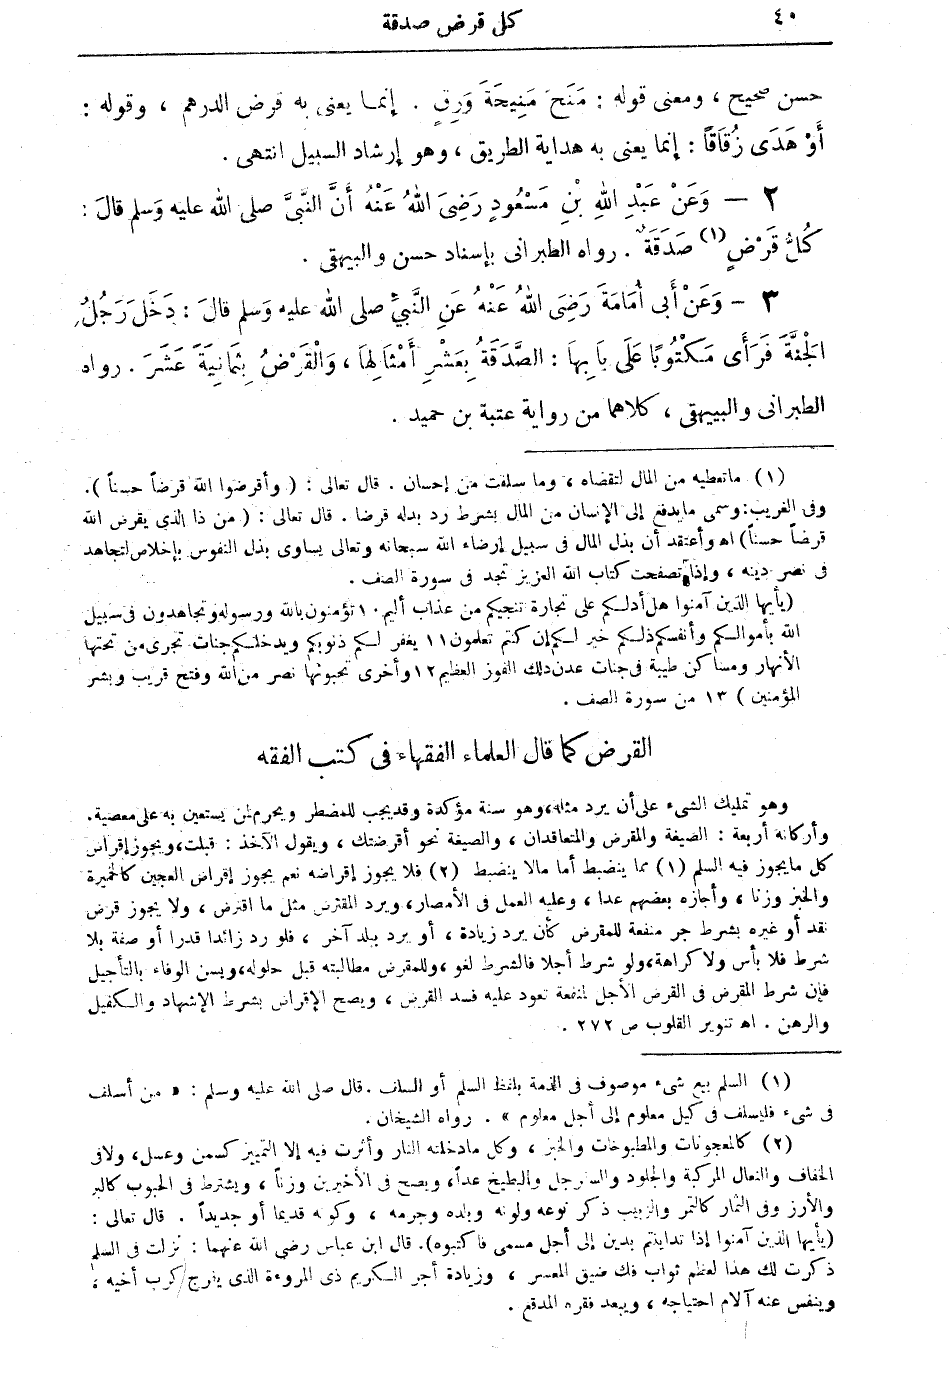 ٤٠
كل قرض صدقة
حسن صحيح ، ومعنى قوله : مَنَحَ مَنِيحَةَ وَرِقٍ . إنما يعنى به قرض الدرهم ، وقوله :
أَوْ هَدَى زُقَاقاً : إنما يعنى به هداية الطريق ، وهو إرشاد السبيل انتهى .
٢ — وَعَنْ عَبْدِ اللهِ بْنِ مَسْعُودٍ رَضِىَ اللهُ عَنْهُ أَنَّ النَّبِىَّ صلى الله عليه وَسلم قالَ :
كُلُّ قَرْضٍ (١) صَدَقَةٌ . رواه الطبرانى بإسناد حسن والبيهقى .
٣ — وَعَنْ أَبى أُمَامَةَ رَضِىَ اللهُ عَنْهُ عَنِ النَّبِيِّ صلى الله عليه وَسلم قالَ : دَخَلَ رَجُلٌ
الْجَنَّةَ فَرَأَى مَكْتُوبًا عَلَى بَابِهاَ : الصَّدَقَةُ بِعَشْرِ أَمْثَالِهاَ ، وَالْقَرْضُ بِثَمَانِيَةَ عَشَرَ . رواه
الطبرانى والبيهقى ، كلاهما من رواية عتبة بن حميد .
(١) ماتعطيه من المال لتقضاه ، وما سلفت من إحسان . قال تعالى : ( وأقرضوا الله قرضاً حسناً ).
وفى الغريب: وسمى مايدفع إلى الإنسان من المال بشرط رد بدله قرضا . قال تعالى : ( من ذا الذى يقرض الله
قرضاً حسناً) اه وأعتقد أن بذل المال فى سبيل إرضاء الله سبحانه وتعالى يساوى بذل النفوس بإخلاص لتجاهد
فى نصر دينه ، وإذا تصفحت كتاب الله العزيز تجد فى سورة الصف .
(يأيها الذين آمنوا هل أدلكم على تجارة تنجيكم من عذاب أليم ١٠ تؤمنون بالله ورسوله وتجاهدون فى سبيل
الله بأموالكم وأنفسكم ذلكم خير لكم إن كنتم تعلمون ١١ يغفر لكم ذنوبكم ويدخلكم جنات تجرى من تحتها
الأنهار ومساكن طيبة فى جنات عدن ذلك الفوز العظيم ١٢ وأخرى تحبونها نصر من الله وفتح قريب وبشر
المؤمنين ) ١٣ من سورة الصف .
القرض كما قال العلماء الفقهاء فى كتب الفقه
وهو تمليك الشىء على أن يرد مثله، وهو سنة مؤكدة وقد يجب للمضطر ويحرم لمن يستعين به على معصية.
وأركانه أربعة : الصيغة والمقرض والمتعاقدان ، والصيغة نحو أقرضتك ، ويقول الآخذ : قبلت، ويجوز إقراض
كل مايجوز فيه السلم (١) مما ينضبط أما مالا ينضبط (٢) فلا يجوز إقراضه نعم يجوز إقراض العجين كالخميرة
والخبز وزنا ، وأجازه بعضهم عدا ، وعليه العمل فى الأمصار، ويرد المقترض مثل ما اقترض ، ولا يجوز قرض
نقد أو غيره بشرط جر منفعة للمقرض كأن يرد زيادة ، أو يرد ببلد آخر ، فلو رد زائدا قدرا أو صفة بلا
شرط فلا بأس ولا كراهة، ولو شرط أجلا فالشرط لغو ، وللمقرض مطالبته قبل حلوله، ويسن الوفاء بالتأجيل
فإن شرط المقرض فى القرض الأجل لمنفعة تعود عليه فسد القرض ، ويصح الإقراض بشرط الإشهاد والكفيل
والرهن . اه تنوير القلوب ص ٢٧٢ .
(١) السلم بيع شىء موصوف فى الذمة بلفظ السلم أو السلف . قال صلى الله عليه وسلم : « من أسلف
فى شىء فليسلف فى كيل معلوم إلى أجل معلوم » . رواه الشيخان .
(٢) كالمعجونات والمطبوخات والخبز ، وكل مادخلته النار وأثرت فيه إلا التمييز كسمن وعسل، ولافى
الخفاف والنعال المركبة والجلود والسفرجل والبطيخ عداً، ويصح فى الأخيرين وزناً ، ويشترط فى الحبوب كالبر
والأرز وفى الثمار كالتمر والزبيب ذكر نوعه ولونه وبلده وجرمه ، وكونه قديما أو جديداً . قال تعالى :
(يأيها الذين آمنوا إذا تداينتم بدين إلى أجل مسمى فاكتبوه). قال ابن عباس رضى الله عنهما : نزلت فى السلم
ذكرت لك هذا لعظم ثواب فك ضيق المعسر ، وزيادة أجر الكريم ذى المروءة الذى يفرج كرب أخيه ،
وينفس عنه آلام احتياجه ، ويبعد فقره المدقع .